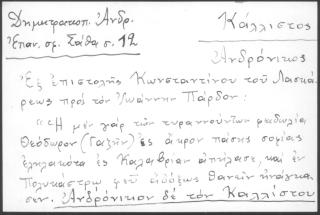 Δημητρακοπ. Ἀνδρ.
Ἐπαν. σφ. Σάθα σ. 12
Κάλλιστος
Ἀνδρόνικος
Ἐξ ἐπιστολῆς Κωνσταντίνου τοῦ Λασκά
ρεως πρὸς τὸν Ἰωάννην Πάρδον:
"«Ἡ μὲν γὰρ τῶν τυραννούντων φειδωλία
Θεόδωρον (Γαζῆν) ἐς ἄκρον πάσης σοφίας
ἐληλακότα ἐς Καλαβρίαν ἀπήλασε, καὶ ἐν
Πολυκάστρῳ φεῦ ἀδόξως θανεῖν ἠνάγκα
σεν. Ἀνδρόνικον δὲ τὸν Καλλίστου